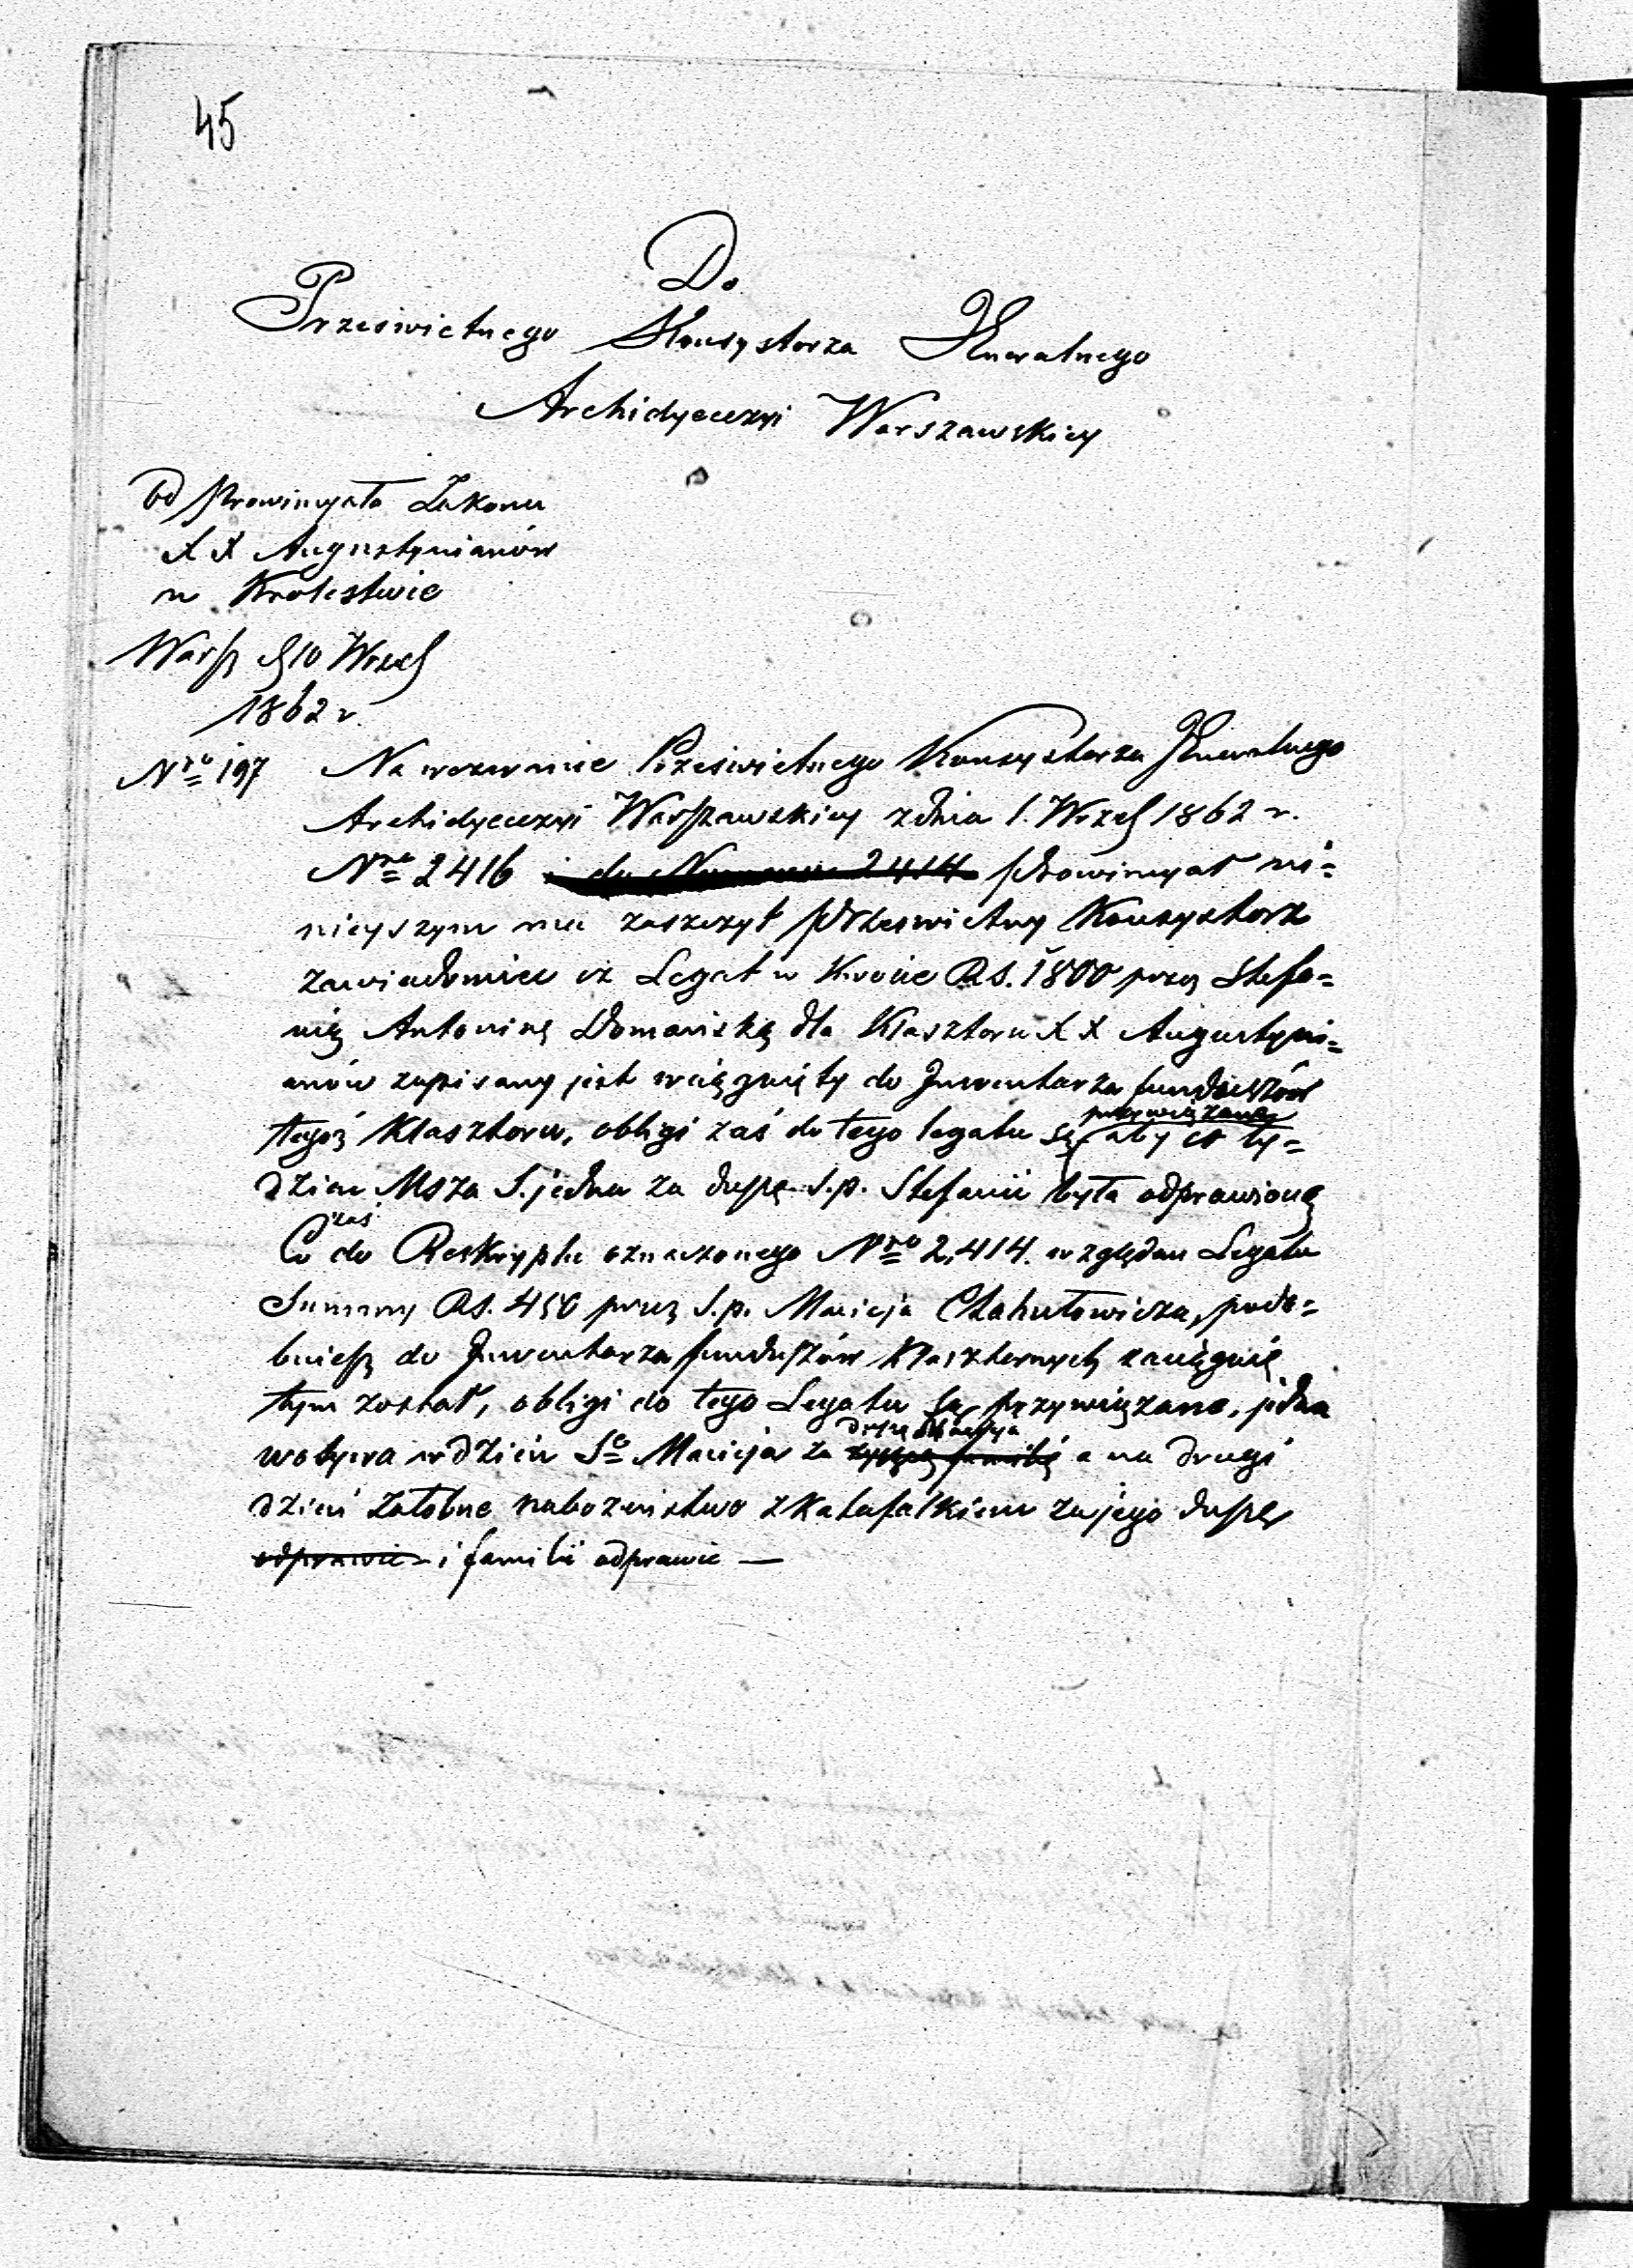 45
Do
Przeswietnego Konsystorza Jeneralnego
Archidyecezyi Warszawskiey
Od Prowincyała Zakonu
X X Augustynianów
w Krolestwie
Warsz d 10 Wrześ
1862 r.
Nro 197 Na wezwanie Prześwietnego Konsystorza Jeneralnego
Archidyecezyi Warszawskiey z dnia 1. Wrześ 1862 r.
Nro 2416 i do Numeru 2414 Prowincyał ni=
nieyszym ma zaszczyt Prześwietny Konsystorz
zawiadomić iż Legat w kwocie Rs. 1800 przez Stefa=
nią Antoninę Domańską dla Klasztoru X X Augustyni=
anów zapisany jest wciągnięty do Inwentarza funduszów
tegoż Klasztoru, obligi zaś do tego legatu są przywiązane aby co ty=
dzień Msza S. jedna za duszę ś.p. Stefanii była odprawioną
Co zaś do Reskryptu oznaczonego Nro 2,414. względem Legatu
Summy Rs. 450 przez ś.p. Macieja Chahutowicza, podo=
bnież do Inwentarza funduszów Klasztornych zaciągnię
tym został, obligi do tego Legatu są przywiązane, jedna
wotywa w dzień So Macieja za duszę Macieja familię a na drugi
dzień żałobne nabożeństwo z Katafalkiem za jego duszę
odprawić i familii odprawić —